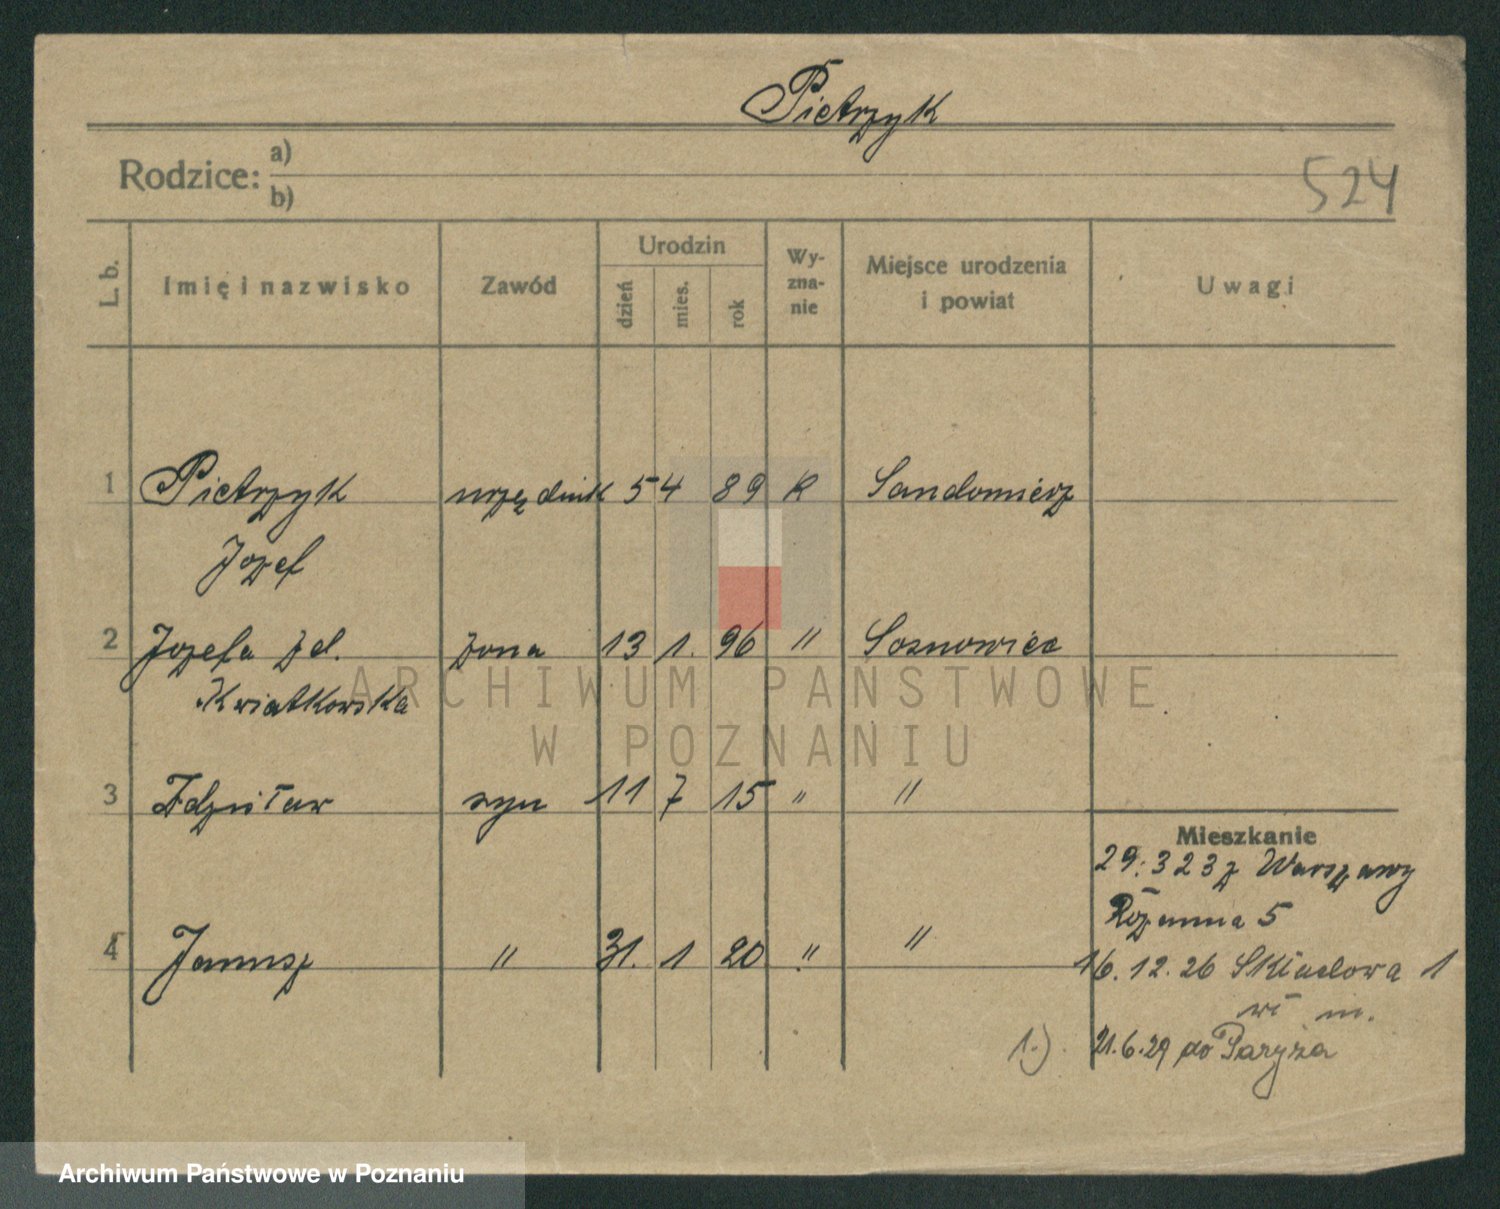 Pietrzyk
Rodzice: a)
b)
524
L. b.
Imię i nazwisko
Zawód
Urodzin
dzień
mies.
rok
Wy-
zna-
nie
Miejsce urodzenia
i powiat
Uwagi
1 Pietrzyk urzędnik 5 4 89 R Sandomierz
Józef
2 Józefa zd. żona 13 1. 96 " Sosnowiec
Kwiatkowska
3 Zdzisław syn 11 7 15 " "
Mieszkanie
29.3 23 z Warszawy
Różanna 5
4 Janusz " 31. 1 20 " "
16.12.26 Składowa 1
wł m.
1.) 21.6.29 do Paryża
ARCHIWUM PAŃSTWOWE
W POZNANIU
Archiwum Państwowe w Poznaniu